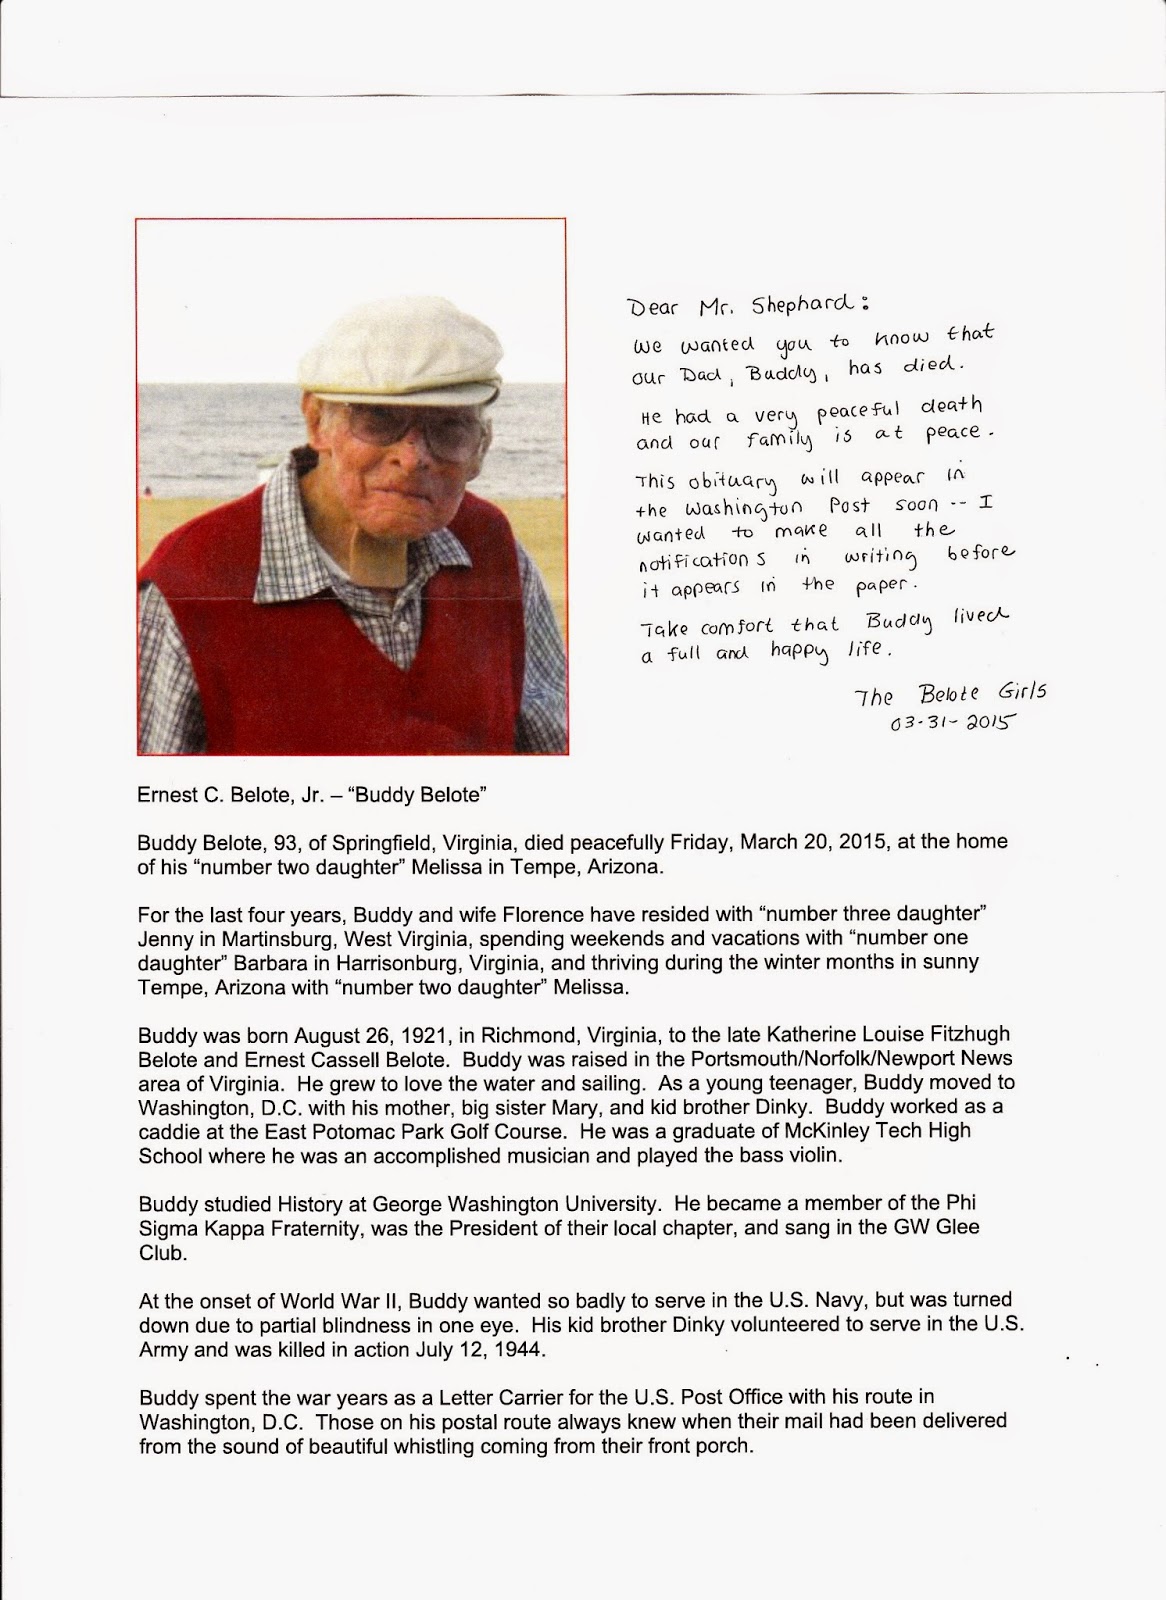 Dear Mr. Shephard:
We wanted you to know that
our Dad, Buddy, has died.
He had a very peaceful death
and our family is at peace.
This obituary will appear in
the Washington Post soon -- I
wanted to make all the
notifications in writing before
it appears in the paper.
Take comfort that Buddy lived
a full and happy life.
The Belote Girls
03-31-2015
Ernest C. Belote, Jr. – “Buddy Belote”
Buddy Belote, 93, of Springfield, Virginia, died peacefully Friday, March 20, 2015, at the home
of his “number two daughter” Melissa in Tempe, Arizona.
For the last four years, Buddy and wife Florence have resided with “number three daughter”
Jenny in Martinsburg, West Virginia, spending weekends and vacations with “number one
daughter” Barbara in Harrisonburg, Virginia, and thriving during the winter months in sunny
Tempe, Arizona with “number two daughter” Melissa.
Buddy was born August 26, 1921, in Richmond, Virginia, to the late Katherine Louise Fitzhugh
Belote and Ernest Cassell Belote.  Buddy was raised in the Portsmouth/Norfolk/Newport News
area of Virginia.  He grew to love the water and sailing.  As a young teenager, Buddy moved to
Washington, D.C. with his mother, big sister Mary, and kid brother Dinky.  Buddy worked as a
caddie at the East Potomac Park Golf Course.  He was a graduate of McKinley Tech High
School where he was an accomplished musician and played the bass violin.
Buddy studied History at George Washington University.  He became a member of the Phi
Sigma Kappa Fraternity, was the President of their local chapter, and sang in the GW Glee
Club.
At the onset of World War II, Buddy wanted so badly to serve in the U.S. Navy, but was turned
down due to partial blindness in one eye.  His kid brother Dinky volunteered to serve in the U.S.
Army and was killed in action July 12, 1944.
Buddy spent the war years as a Letter Carrier for the U.S. Post Office with his route in
Washington, D.C.  Those on his postal route always knew when their mail had been delivered
from the sound of beautiful whistling coming from their front porch.